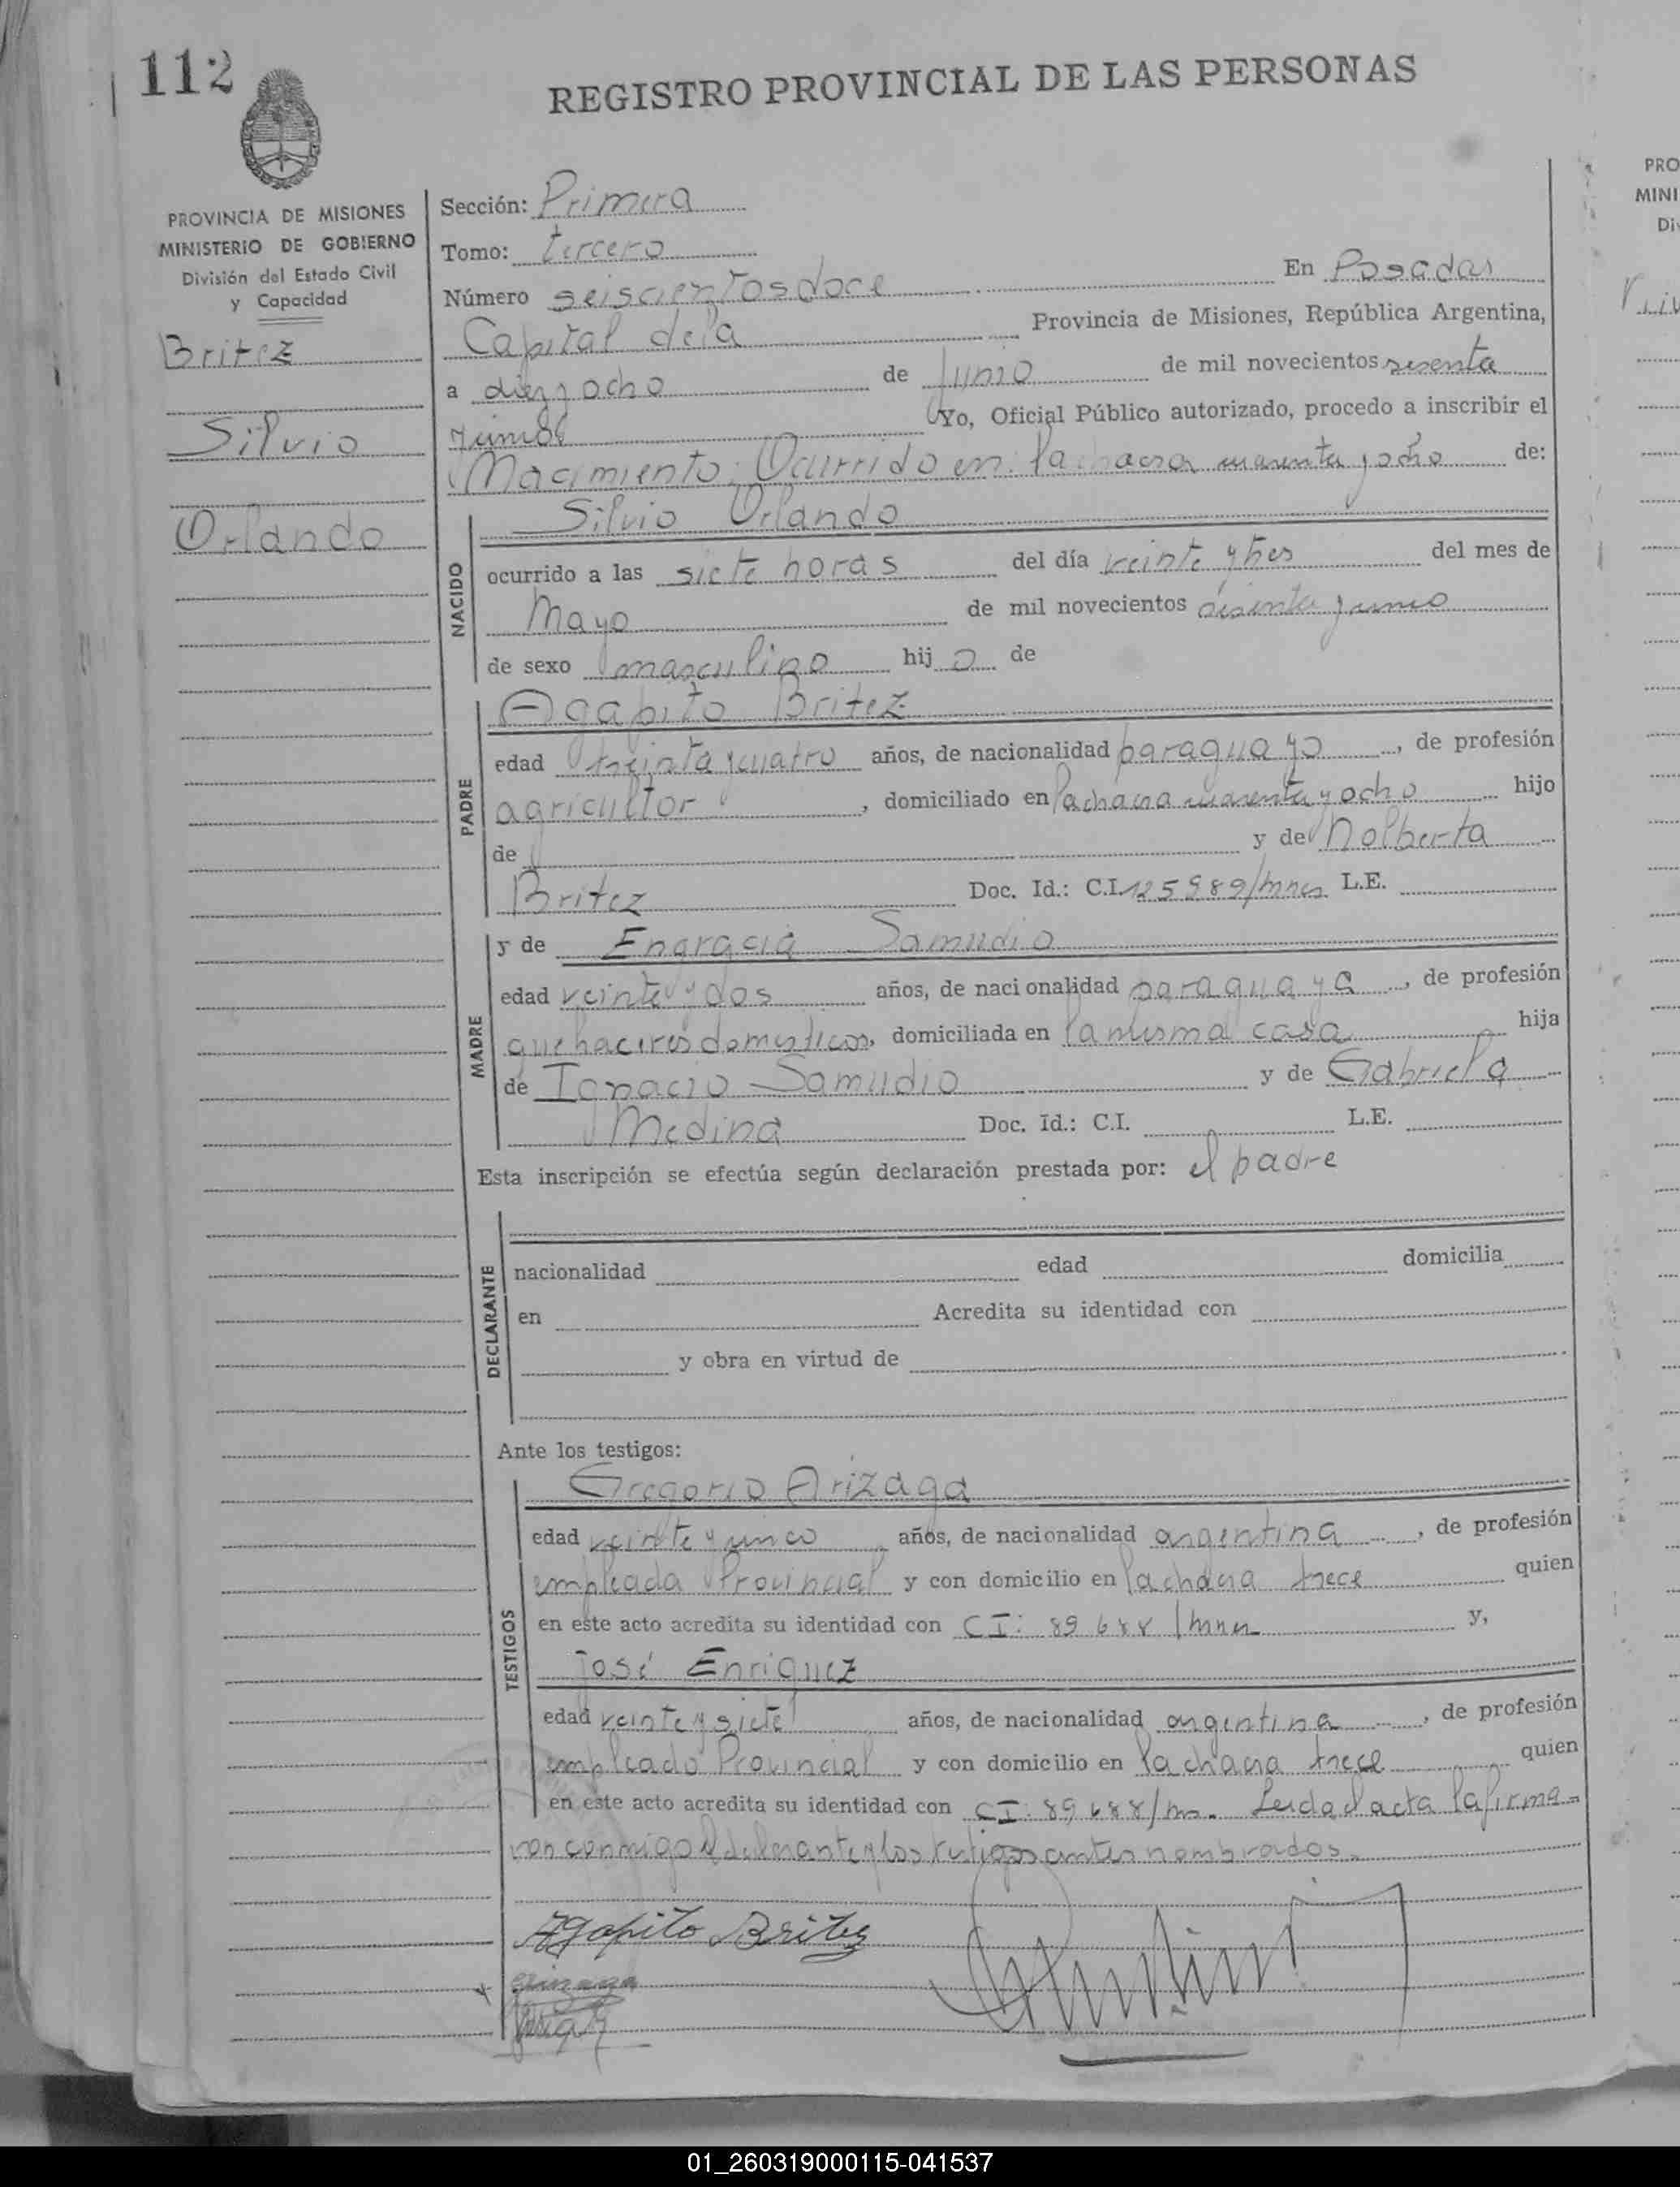 112
REGISTRO PROVINCIAL DE LAS PERSONAS
PROVINCIA DE MISIONES
MINISTERIO DE GOBIERNO
División del Estado Civil
y Capacidad
Britez
Silvio
Orlando
Sección: Primera
Tomo: tercero
Número seiscientos doce En Posadas
Capital de la Provincia de Misiones, República Argentina,
a diez y ocho de junio de mil novecientos sesenta
Yo, Oficial Público autorizado, procedo a inscribir el
Nacimiento: Ocurrido en: la chacra cuarenta y ocho de:
NACIDO
Silvio Orlando
ocurrido a las siete horas del día veinte y tres del mes de
Mayo de mil novecientos sesenta y cinco
de sexo masculino hijo de
PADRE
Agapito Britez
edad treinta y cuatro años, de nacionalidad paraguayo, de profesión
agricultor, domiciliado en la chacra cuarenta y ocho hijo
de y de Nolberta
Britez Doc. Id.: C.I. 125989/mnes L.E.
MADRE
y de Engracia Samudio
edad veinte y dos años, de nacionalidad paraguaya, de profesión
quehaceres domesticos, domiciliada en la misma casa hija
de Ignacio Samudio y de Gabriela
Medina Doc. Id.: C.I. L.E.
Esta inscripción se efectúa según declaración prestada por: el padre
DECLARANTE
nacionalidad edad domicilia
en Acredita su identidad con
y obra en virtud de
Ante los testigos:
TESTIGOS
Gregorio Arizaga
edad veinte y cinco años, de nacionalidad argentina, de profesión
empleada Provincial y con domicilio en la chacra trece quien
en este acto acredita su identidad con CI: 89688/mnes y,
José Enriquez
edad veinte y siete años, de nacionalidad argentina, de profesión
empleado Provincial y con domicilio en la chacra trece quien
en este acto acredita su identidad con CI: 89688/ms. Leida el acta la firma-
ron conmigo el declarante y los testigos antes nombrados.
Agapito Britez
PRO
MINI
Div
01_260319000115-041537